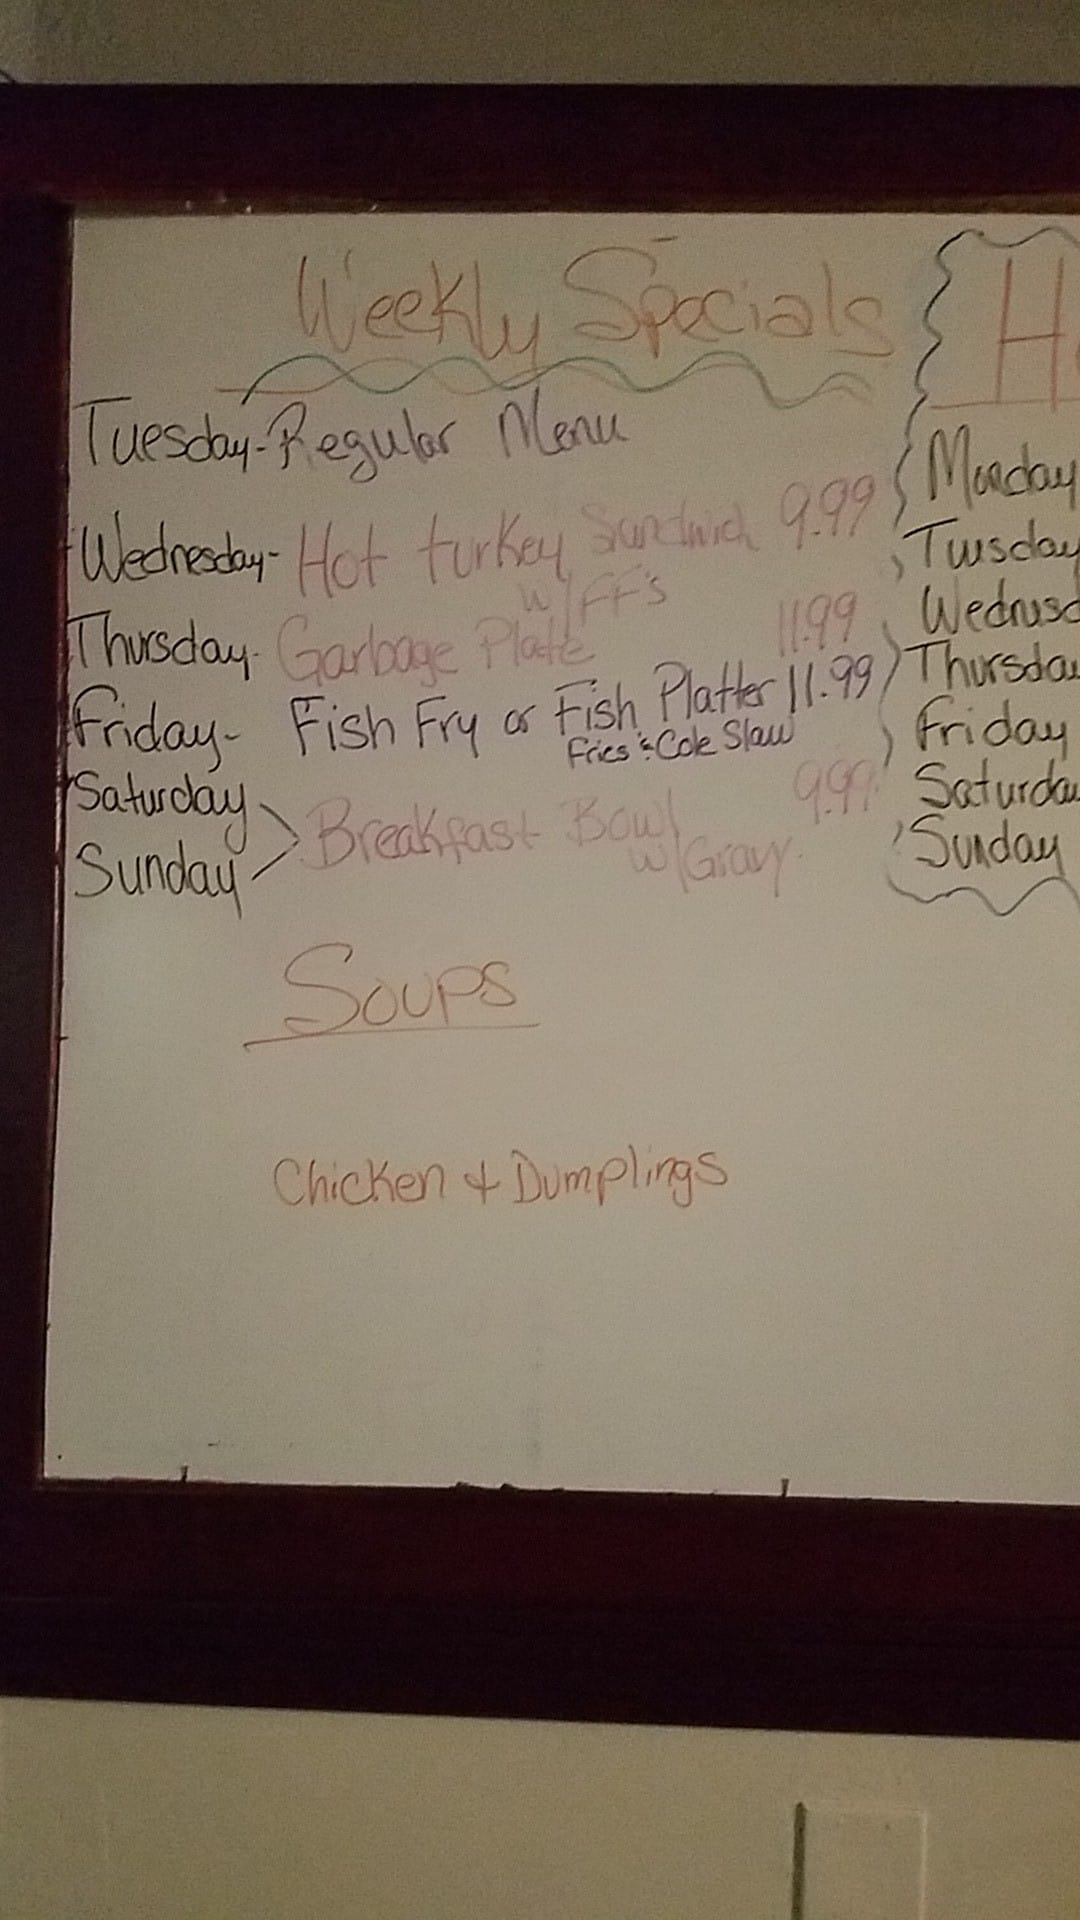 Weekly Specials
Tuesday-Regular Menu
Wednesday- Hot turkey Sandwich 9.99
w/FF's
Thursday- Garbage Plate 11.99
Friday- Fish Fry or Fish Platter 11.99
Fries & Cole Slaw
Saturday
Sunday
Breakfast Bowl 9.99
w/Gravy
Soups
Chicken & Dumplings
H
Monday
Tuesday
Wednesd
Thursda
Friday
Saturda
Sunday